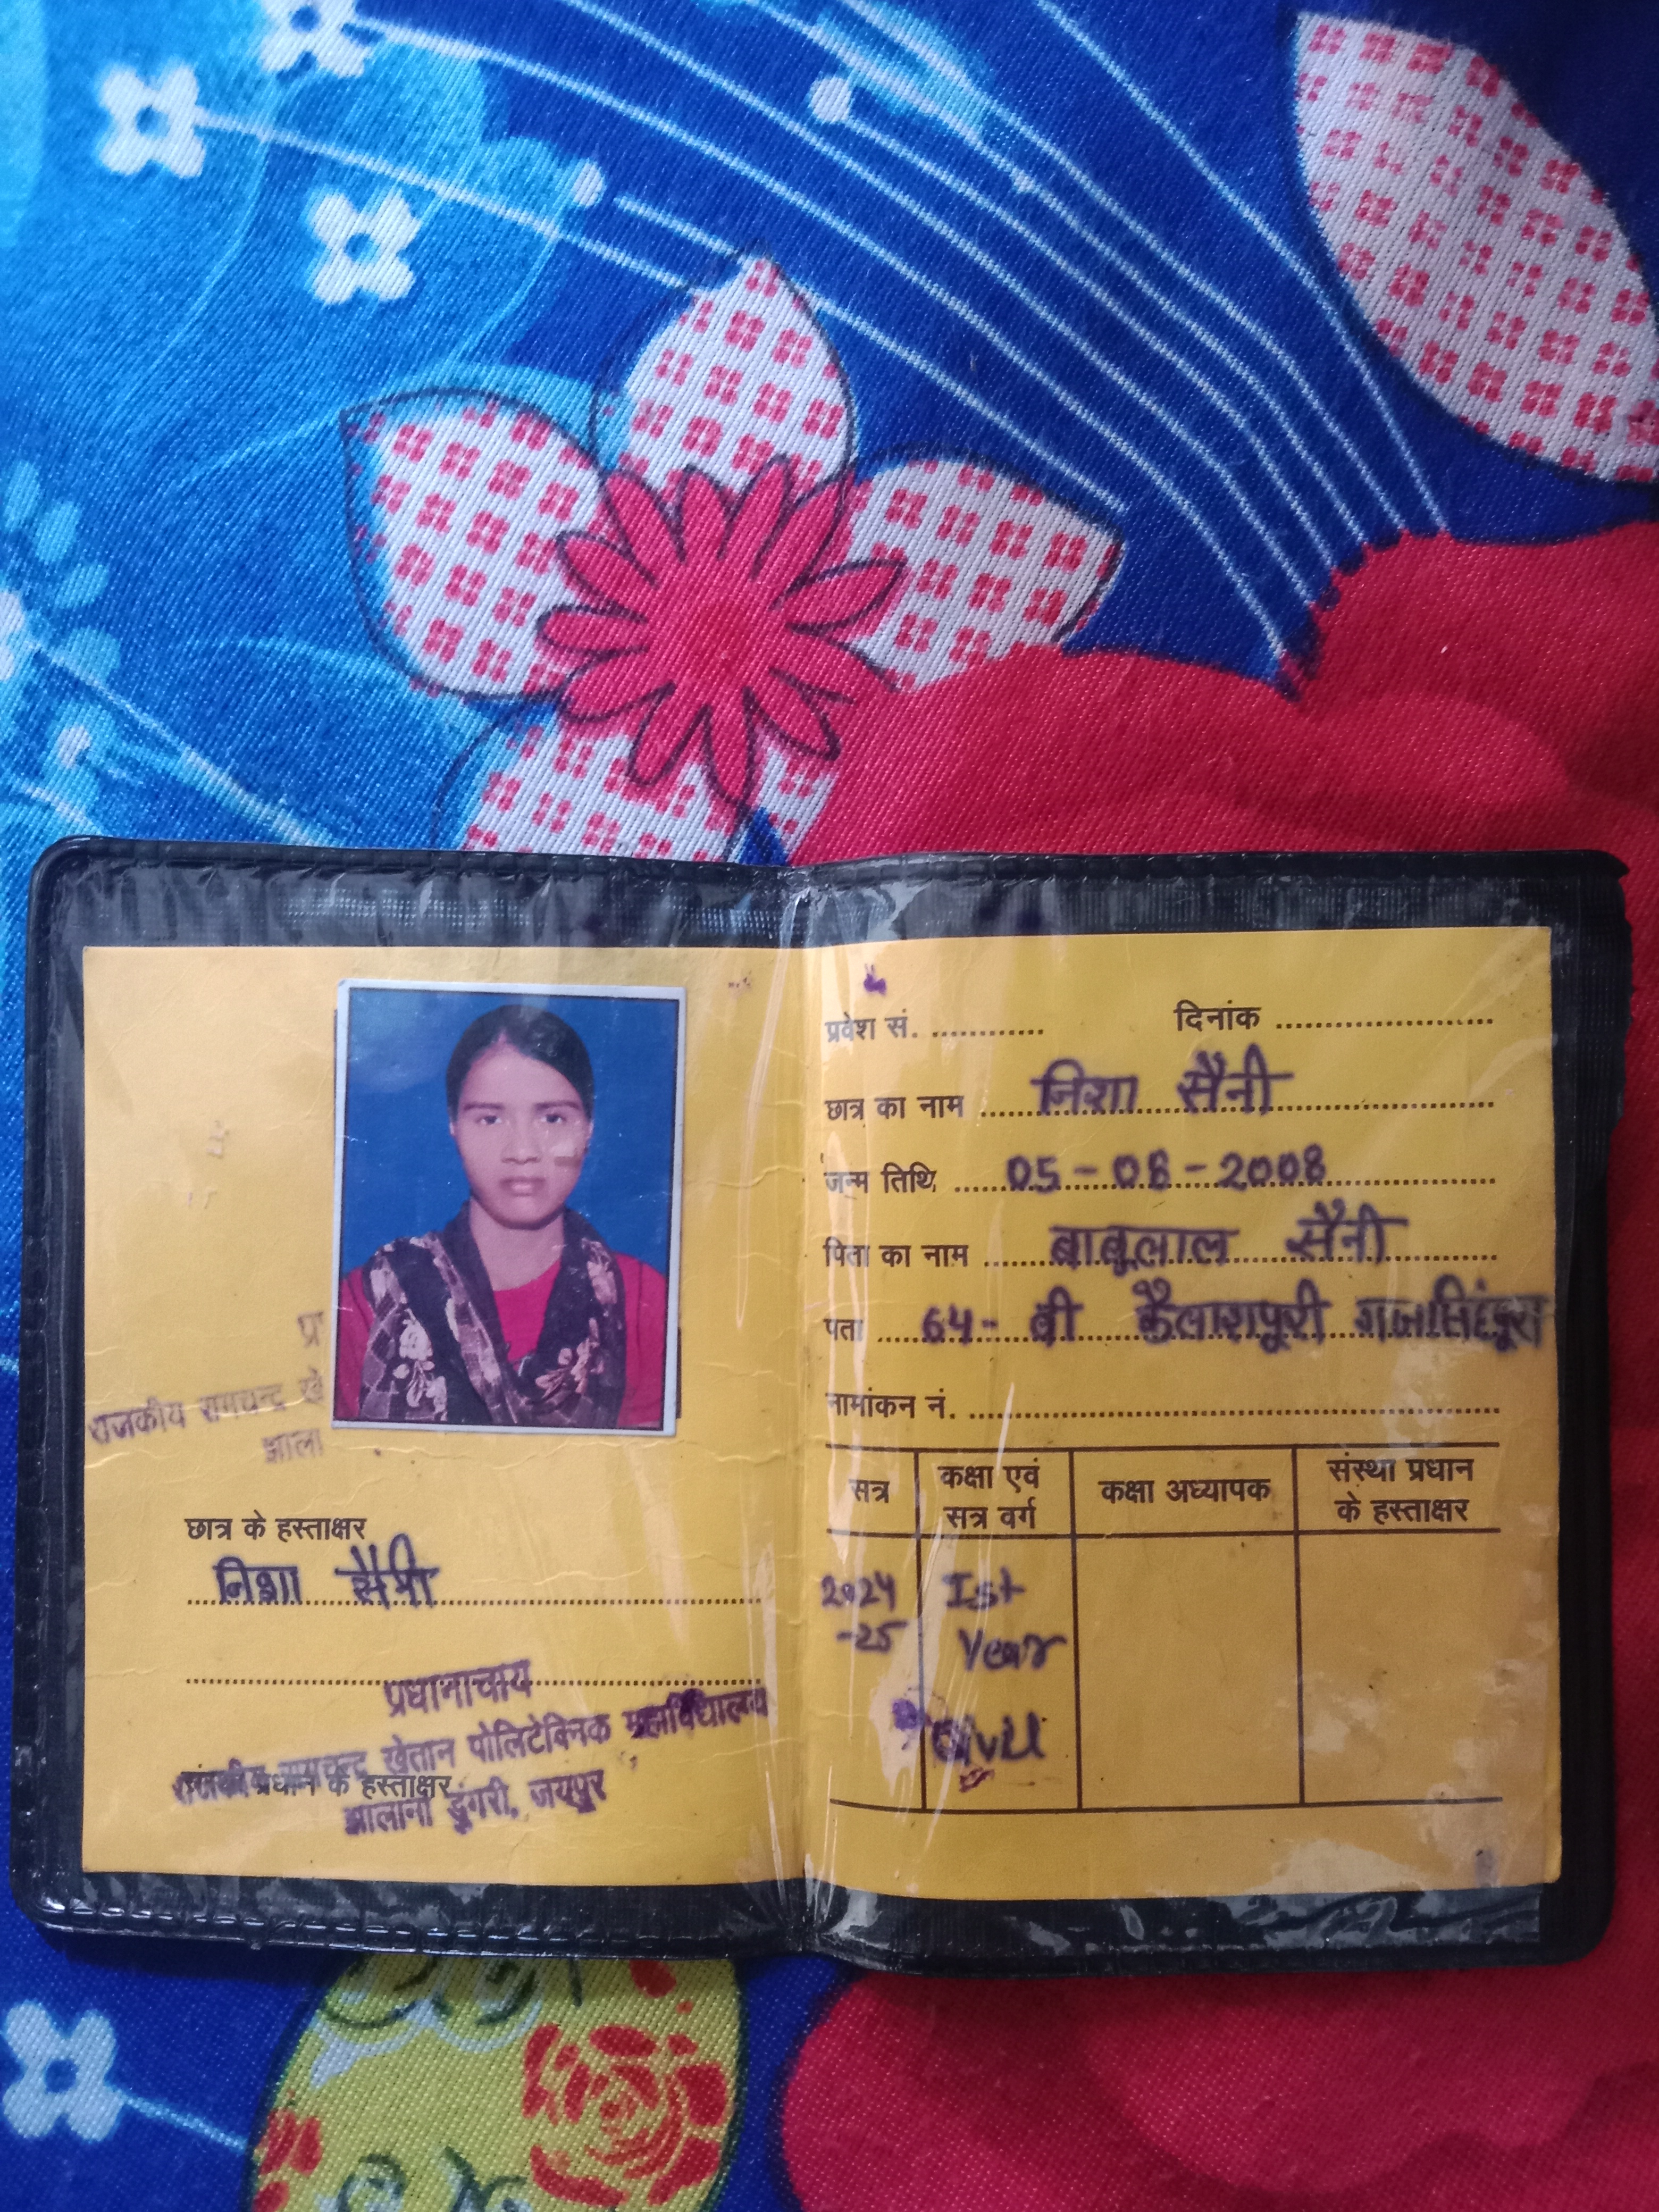 प्र
राजकीय रामचन्द्र खे
झाला
छात्र के हस्ताक्षर
निशा सैनी
प्रधानाचार्य
राजकीय रामचन्द्र खेतान पोलिटेक्निक महाविद्यालय
संस्था प्रधान के हस्ताक्षर
झालाना डूंगरी, जयपुर
प्रवेश सं. ............ दिनांक ......................
छात्र का नाम निशा सैनी
जन्म तिथि 05-08-2008
पिता का नाम बाबूलाल सैनी
पता 64- बी कैलाशपुरी गजसिंहपुरा
नामांकन नं. ......................
सत्र कक्षा एवं सत्र वर्ग कक्षा अध्यापक संस्था प्रधान के हस्ताक्षर
2024 Ist
-25 Year
Civil